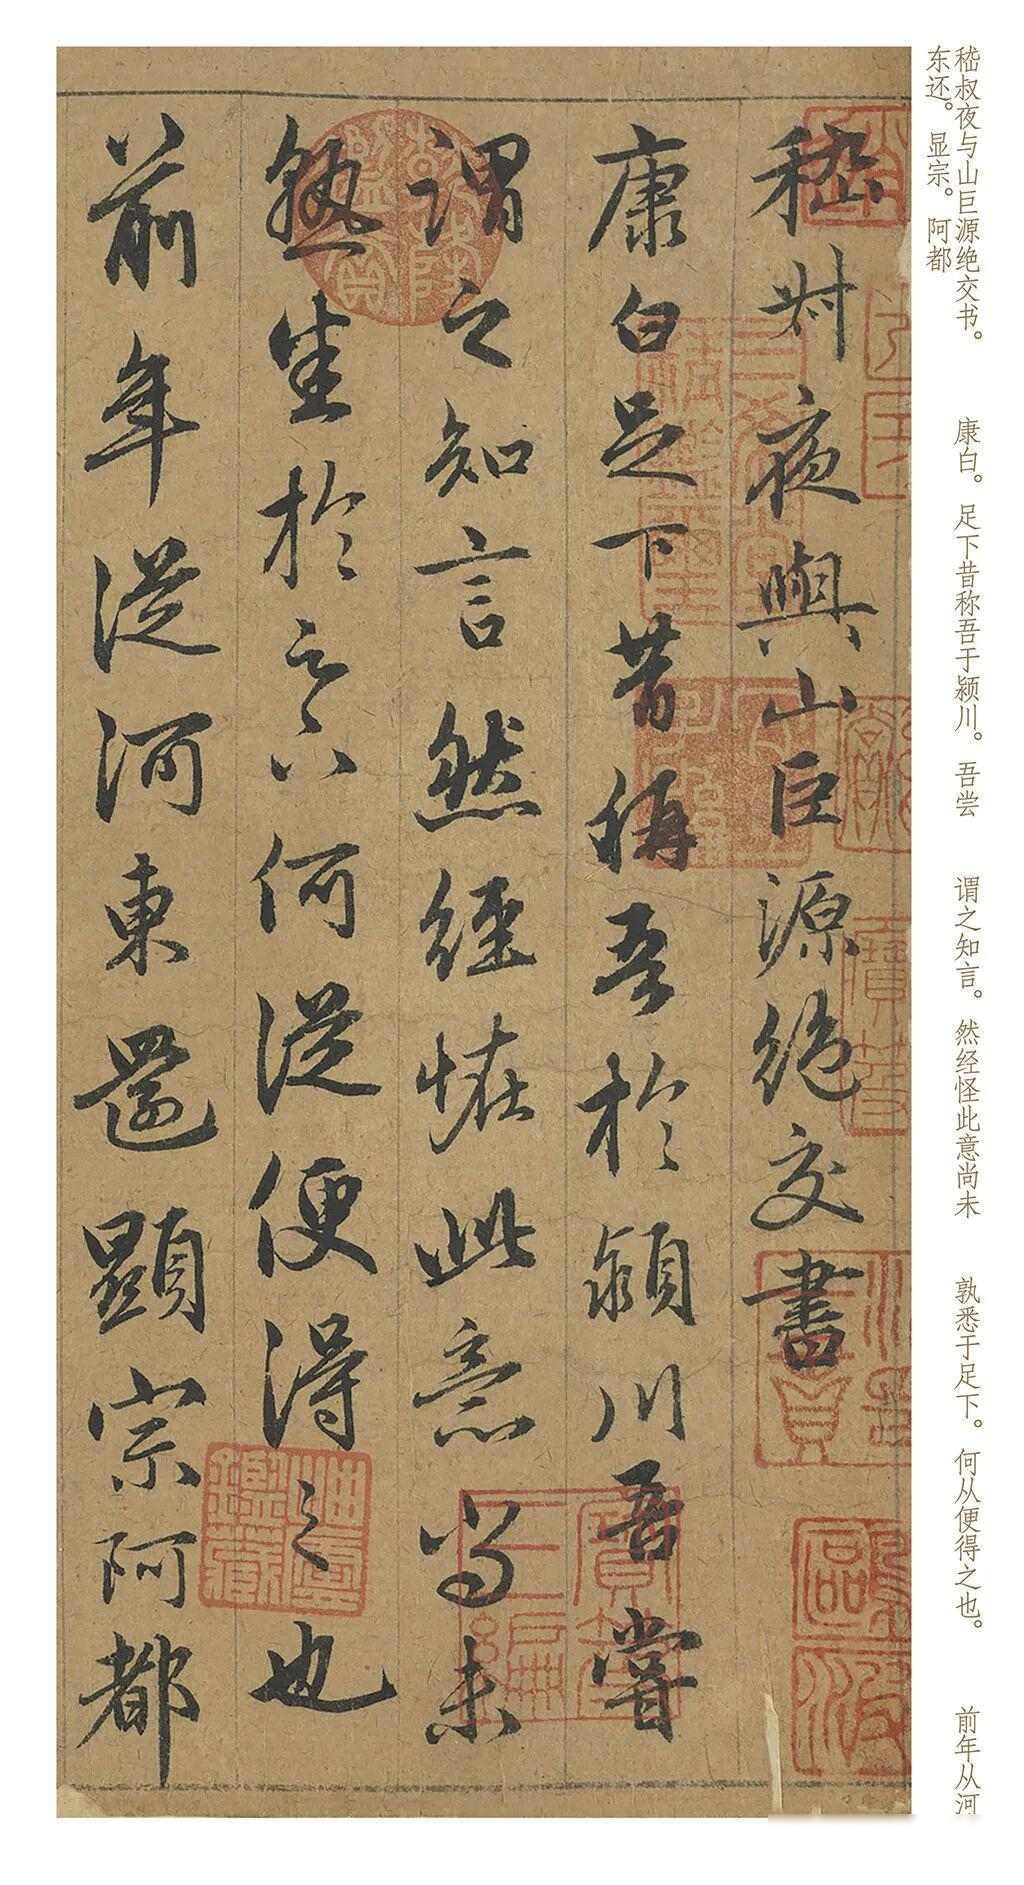 嵇叔夜与山巨源绝交书。 康白。足下昔称吾于颍川。吾尝 谓之知言。然经怪此意尚未 孰悉于足下。何从便得之也。 前年从河
东还。显宗。阿都
嵇叔夜與山巨源絕交書
康白足下昔稱吾於潁川吾嘗
謂之知言然經怪此意尚未
孰悉於足下何從便得之也
前年從河東還顯宗阿都
三希堂精鑑璽
宜子孫
寶笈三編